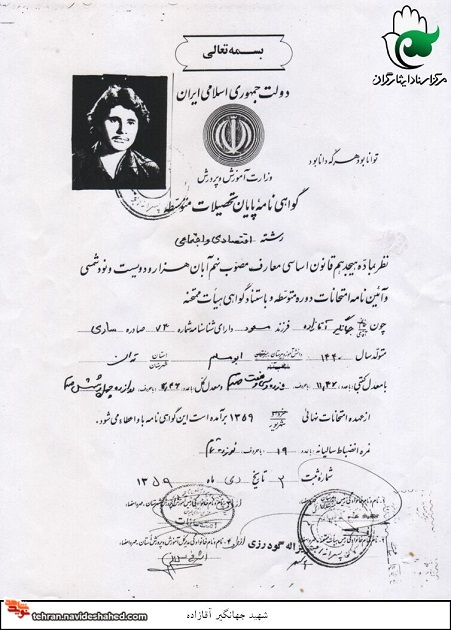 بسمه تعالی
مرکز اسناد ایثارگران
دولت جمهوری اسلامی ایران
توانا بود هر که دانا بود
وزارت آموزش و پرورش
گواهی نامه پایان تحصیلات متوسطه
رشته اقتصادی و اجتماعی
نظر بماده هیجدهم قانون اساسی معارف مصوب نهم آبان هزار و دویست و نود شمسی
و آئین نامه امتحانات دوره متوسطه و باستناد گواهی هیأت ممتحنه
چون جهانگیر آقازاده فرزند مسعود دارای شناسنامه شماره ۷۴ صادره ساری
متولد سال ۱۳۴۰ دانش آموز دبیرستان ابومسلم استان شهرستان تهران
با معدل کتبی (بعدد) ۱۱٫۴۶ (باحروف) و معدل کل (بعدد) (باحروف) دوازده و چهل و شش صدم
از عهده امتحانات نهائی خرداد شهریور ۱۳۵۹ برآمده است این گواهی نامه باو اعطاء می شود.
نمره انضباط سالیانه (بعدد) ۱۹ (باحروف) نوزده تمام
شماره ثبت ۲ تاریخ دی ماه ۱۳۵۹
گودرزی
شهید جهانگیر آقازاده
tehran.navideshahed.com